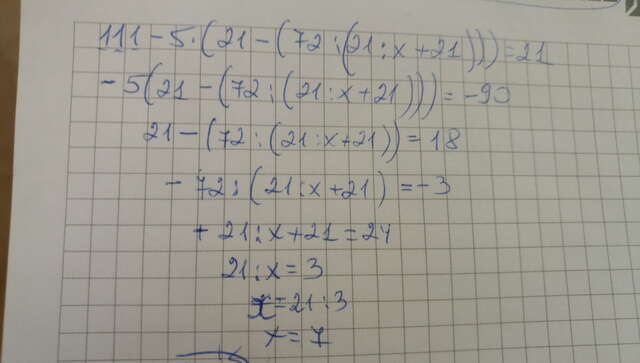 111 - 5 · (21 - (72 : (21 : x + 21))) = 21
- 5(21 - (72 : (21 : x + 21))) = -90
21 - (72 : (21 : x + 21)) = 18
- 72 : (21 : x + 21) = -3
+ 21 : x + 21 = 24
21 : x = 3
x = 21 : 3
x = 7